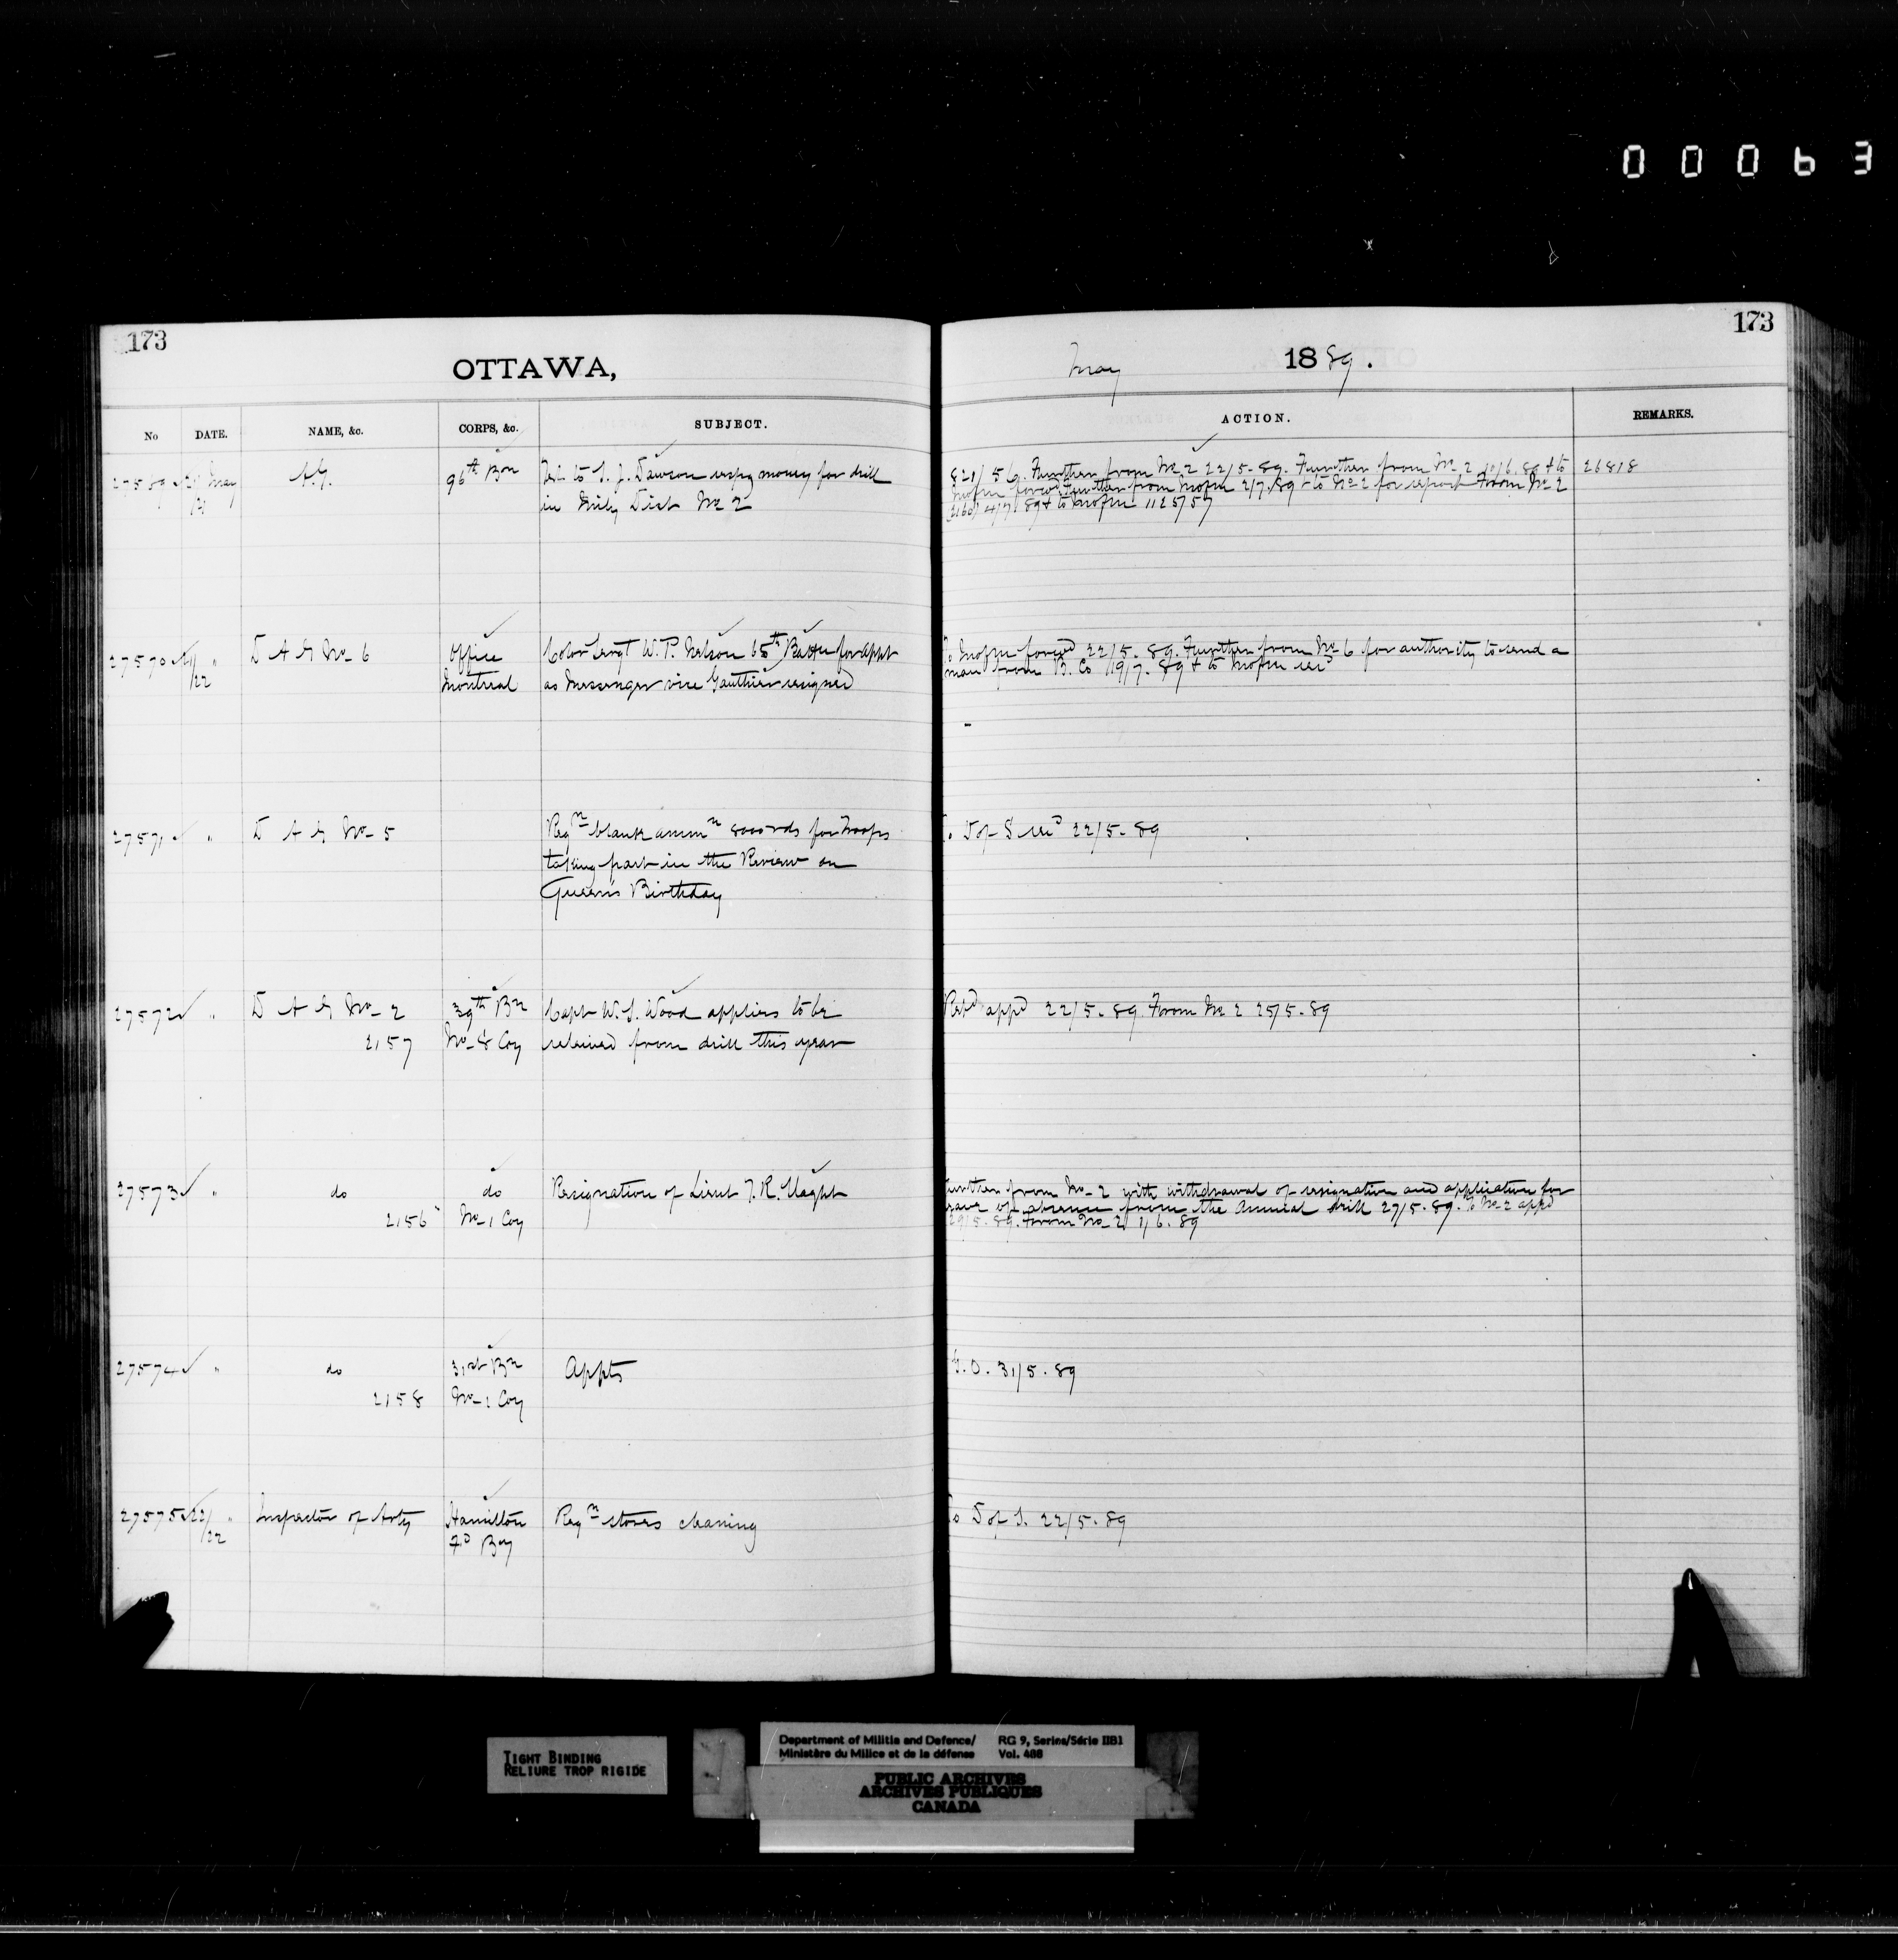 00063
173
OTTAWA,
No DATE. NAME, &c. CORPS, &c. SUBJECT.
27569 21 May A.G. 96th Bn Tel. to S. J. Dawson respg money for drill
21 in Mily Dist No 2
27570 21 " D A G No 6 Office Color Sergt W. P. Nelson 65th Battn for appt
22 Montreal as Messenger vice Gauthier resigned
27571 " D A G No 5 Reqn blank ammn 8000 rds for Troops
taking part in the Review on
Queen's Birthday
27572 " D A G No 2 39th Bn Capt W. S. Wood applies to be
2157 No 8 Coy relieved from drill this year
27573 " do do Resignation of Lieut T. R.
2156 No 1 Coy
27574 " do 31st Bn Appts
2158 No 1 Coy
27575 22 " Inspector of Arty Hamilton Reqn stores cleaning
22 Fd By
173
May 1889.
ACTION. REMARKS.
821/56. Further from No 2 22/5-89. Further from No 2 10/6.89 & to 26818
Mofm forwd Further from Mofm 2/7.89 & to No 2 for report From No 2
2160 4/7 89 & to Mofm 1125/57
To Mofm forwd 22/5-89. Further from No 6 for authority to send a
man from B. Co 19/7-89 & to Mofm recd
To D of S recd 22/5-89
Repd appd 22/5-89 From No 2 25/5-89
Further from No 2 with withdrawal of resignation and application for
leave of absence from the annual drill 27/5-89. To No 2 appd
29/5-89. From No 2 1/6.89
G.O. 31/5.89
To D of S. 22/5-89
TIGHT BINDING
RELIURE TROP RIGIDE
Department of Militia and Defence/ RG 9, Series/Série IIB1
Ministère du Milice et de la défense Vol. 488
PUBLIC ARCHIVES
ARCHIVES PUBLIQUES
CANADA